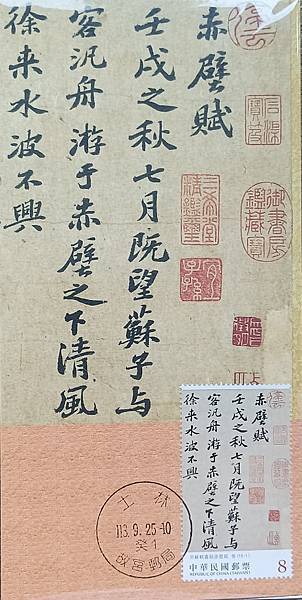 赤壁賦
壬戌之秋七月既望蘇子与
客汎舟游于赤壁之下清風
徐来水波不興
御書房鑑藏寶
三希堂精鑑璽
宜子孫
赤壁賦
壬戌之秋七月既望蘇子与
客汎舟游于赤壁之下清風
徐来水波不興
中華民國郵票
REPUBLIC OF CHINA (TAIWAN)
8
士林
113.9.25-10
癸1
故宮郵局